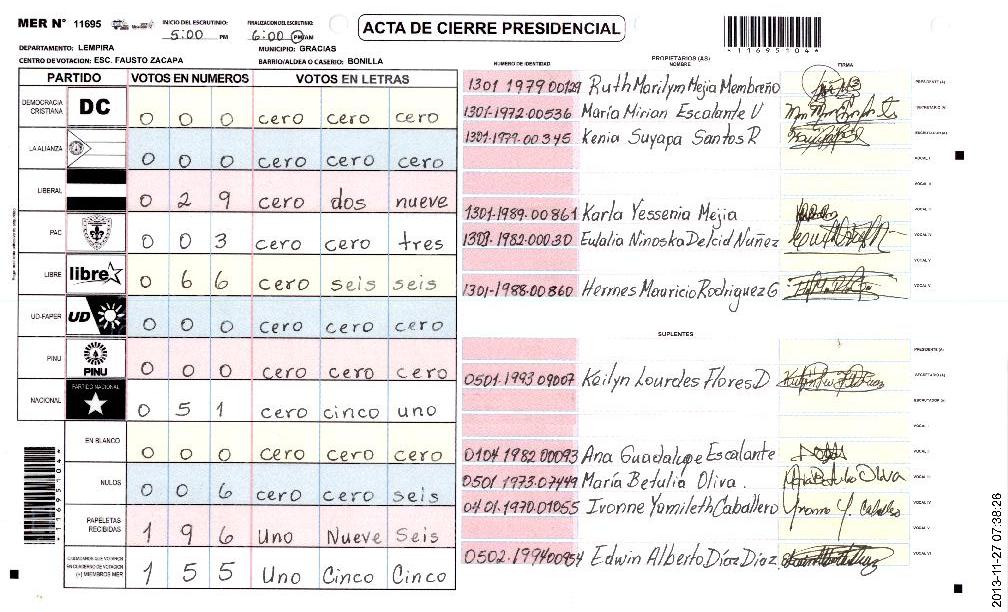 MER Nº 11695
INICIO DEL ESCRUTINIO: 5:00 PM
FINALIZACION DEL ESCRUTINIO: 6:00 PM
ACTA DE CIERRE PRESIDENCIAL
*11695104*
DEPARTAMENTO: LEMPIRA
MUNICIPIO: GRACIAS
CENTRO DE VOTACION: ESC. FAUSTO ZACAPA
BARRIO/ALDEA O CASERIO: BONILLA
PARTIDO VOTOS EN NUMEROS VOTOS EN LETRAS
DEMOCRACIA CRISTIANA DC 0 0 0 cero cero cero
LA ALIANZA 0 0 0 cero cero cero
LIBERAL 0 2 9 cero dos nueve
PAC 0 0 3 cero cero tres
LIBRE libre 0 6 6 cero seis seis
UD-FAPER UD 0 0 0 cero cero cero
PINU PINU 0 0 0 cero cero cero
NACIONAL PARTIDO NACIONAL 0 5 1 cero cinco uno
EN BLANCO 0 0 0 cero cero cero
NULOS 0 0 6 cero cero seis
PAPELETAS RECIBIDAS 1 9 6 Uno Nueve Seis
CIUDADANOS QUE VOTARON EN CUADERNO DE VOTACION (+) MIEMBROS MER 1 5 5 Uno Cinco Cinco
*11695104*
PROPIETARIOS (AS)
NUMERO DE IDENTIDAD NOMBRE FIRMA
1301 1979 00129 Ruth Marilym Mejia Membreño PRESIDENTE (A)
1301-1972-00536 María Mirian Escalante U SECRETARIO (A)
1301-1979-00345 Kenia Suyapa Santos R ESCRUTADOR (A)
VOCAL I
VOCAL II
1301-1989-00861 Karla Yessenia Mejia
1301-1982-00030 Eulalia Ninoska Delcid Nuñez VOCAL IV
VOCAL V
1301-1988-00860 Hermes Mauricio Rodriguez G
SUPLENTES
PRESIDENTE (A)
0501-1993 09007 Keilyn Lourdes Flores D SECRETARIO (A)
ESCRUTADOR (A)
VOCAL I
0104 1982 00093 Ana Guadalupe Escalante
0501 1973-07449 María Betulia Oliva. Maria Betulia Oliva
0401-1970-01055 Ivonne Yamileth Caballero Yvonne Y. Caballero VOCAL IV
VOCAL V
0502-1994 00954 Edwin Alberto Díaz Díaz VOCAL VI
2013-11-27 07:38:26